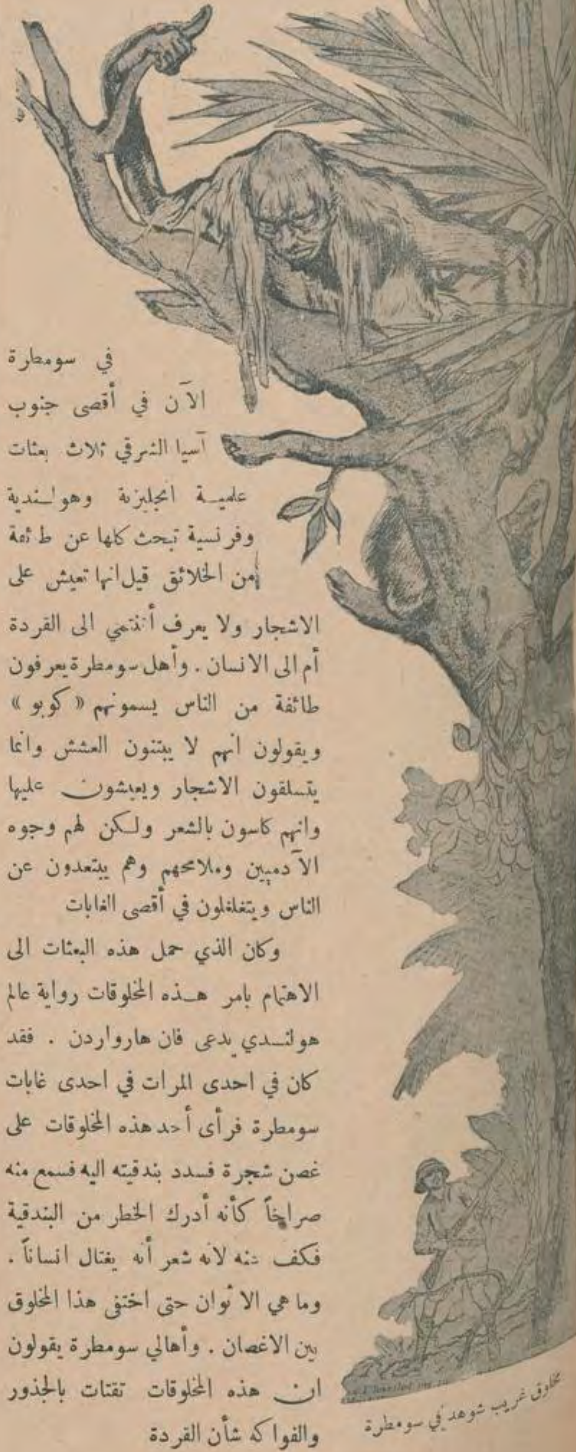 في سومطرة
الآن في أقصى جنوب
آسيا الشرقي ثلاث بعثات
علمية انجليزية وهولندية
وفرنسية تبحث كلها عن طائفة
من الخلائق قيل انها تعيش على
الاشجار ولا يعرف أتنتمي الى القردة
أم الى الانسان . وأهل سومطرة يعرفون
طائفة من الناس يسمونهم « كوبو »
ويقولون انهم لا يبتنون العشش وانما
يتسلقون الاشجار ويعيشون عليها
وانهم كاسون بالشعر ولكن لهم وجوه
الآدميين وملامحهم وهم يبتعدون عن
الناس ويتغلغلون في أقصى الغابات
وكان الذي حمل هذه البعثات الى
الاهتمام بامر هذه المخلوقات رواية عالم
هولندي يدعى فان هارواردن . فقد
كان في احدى المرات في احدى غابات
سومطرة فرأى أحد هذه المخلوقات على
غصن شجرة فسدد بندقيته اليه فسمع منه
صراخاً كأنه أدرك الخطر من البندقية
فكف عنه لانه شعر أنه يغتال انساناً .
وما هي الا ثوان حتى اختفى هذا المخلوق
بين الاغصان . وأهالي سومطرة يقولون
ان هذه المخلوقات تقتات بالجذور
والفواكه شأن القردة
مخلوق غريب شوهد في سومطرة